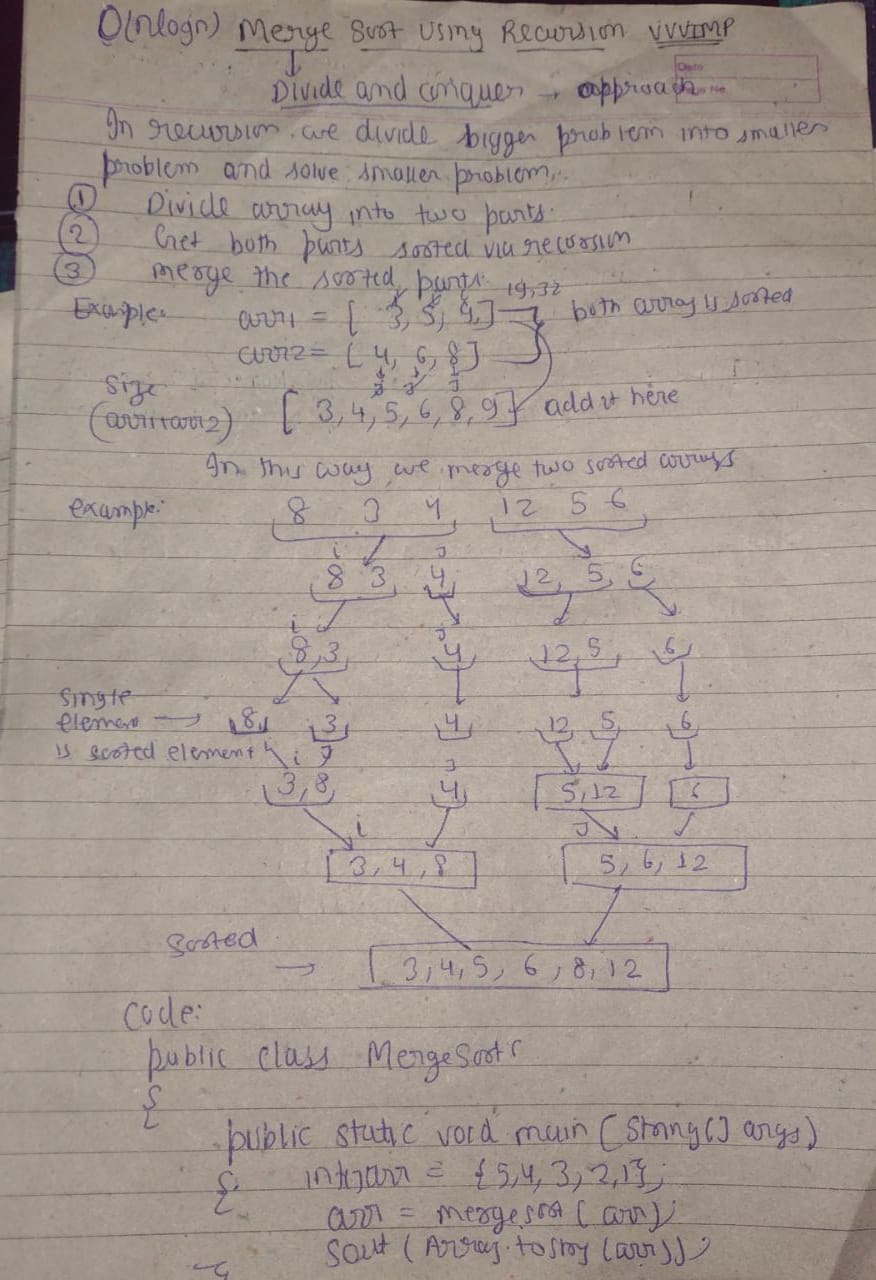 O(nlogn) Merge Sort Using Recursion VVVIMP
Date
Divide and conquer → approach
In recursion we divide bigger problem into smaller
problem and solve smaller problem.
① Divide array into two parts.
② Get both parts sorted via recursion
③ merge the sorted parts.
19,32
Example: arr1 = [ 3, 5, 9,] both array is sorted
arr2 = [ 4, 6, 8]
Size
(arr1+arr2) [ 3, 4, 5, 6, 8, 9] add it here
In this way we merge two sorted arrays
example: 8 3 4 12 5 6
i j
8 3 4 12, 5, 6
i j
8,3 4 12,5 6
Single
element → 8 3 4 12 5 6
is sorted element i j
j
3,8 4 5,12 6
i j
3, 4, 8 5, 6, 12
sorted
→ 3,4,5, 6, 8, 12
Code:
public class MergeSort
{
public static void main (String[] args)
{ int[]arr = {5,4, 3, 2,1};
arr = mergesort (arr);
Sout (Arrays.tostry (arr));